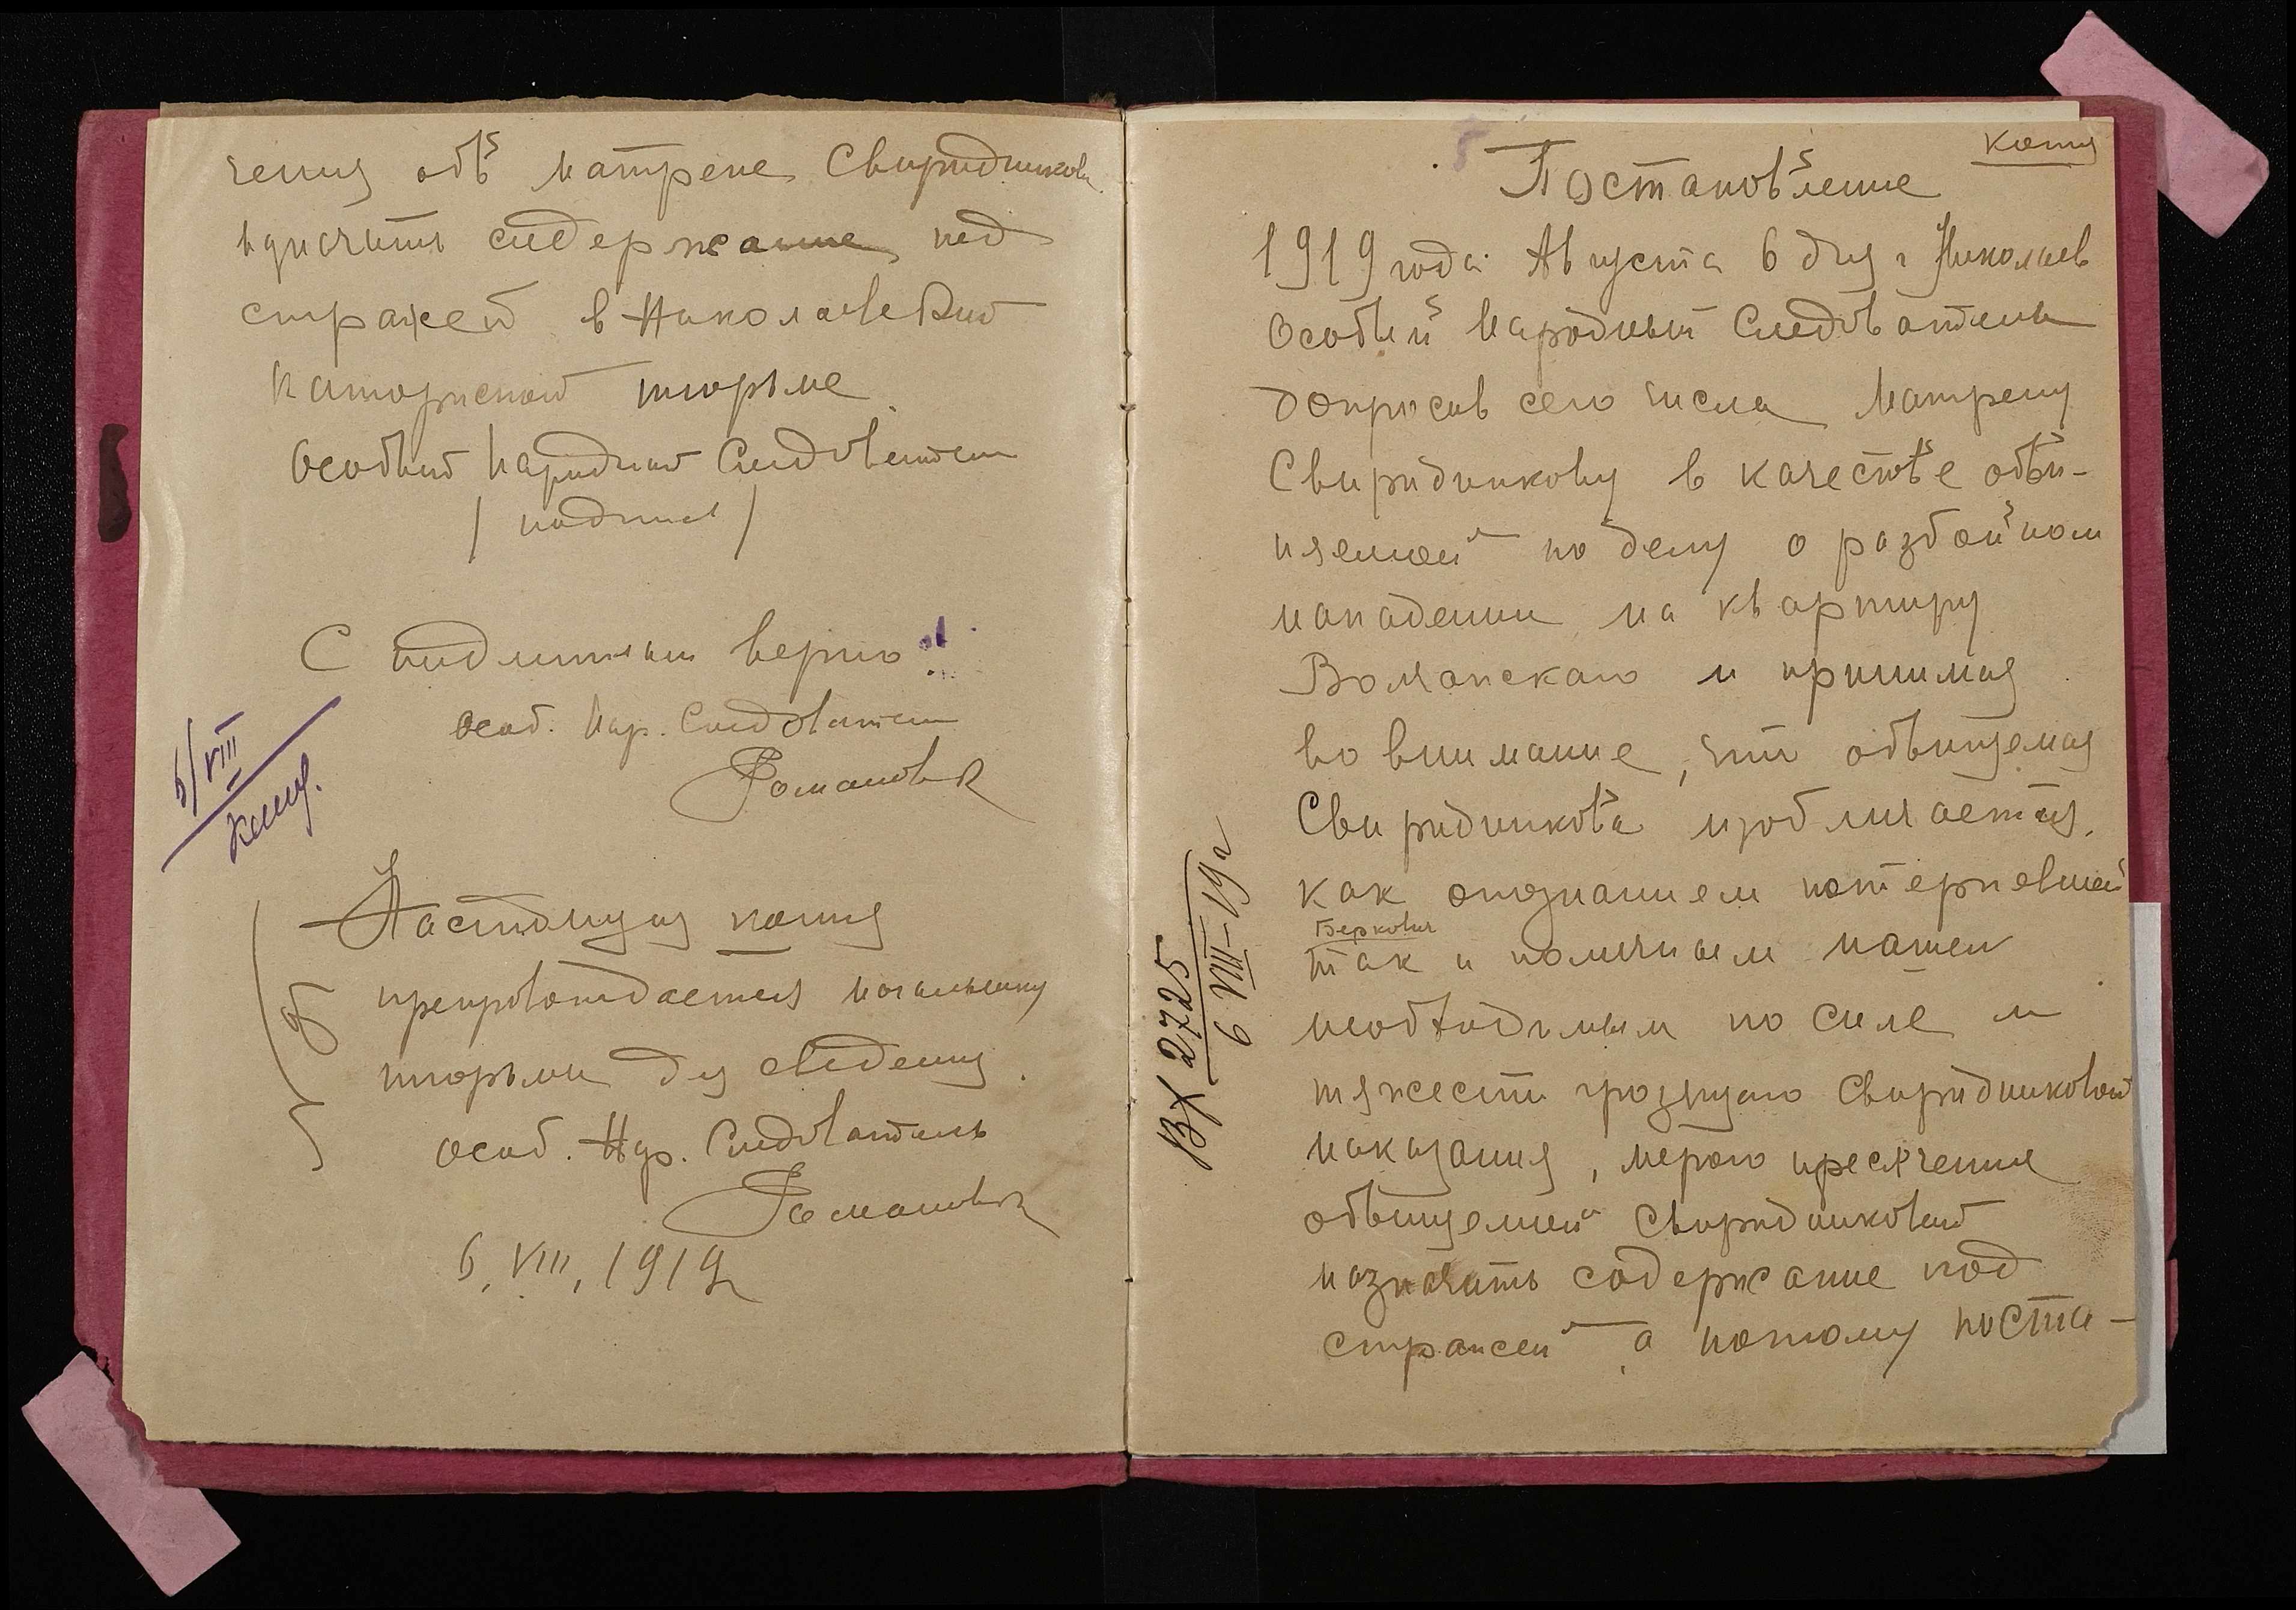 чения обв Матрене Свиридниковой
назначить содержание под
стражей в Николаевской
Каторжной тюрьме
Особый Народный Следователь
/ подпись /
С подлинным верно:
Особ. Нар. Следователь
Романовск
6/VIII
Настоящая копия
препровождается начальнику
тюрьмы для сведения.
Особ. Нар. Следователь
Романовск
6, VIII, 1919 г
Копия
Постановление
1919 года Августа 6 дня г Николаев
Особый Народный Следователь
допросив сего числа Матрену
Свиридникову в качестве обви-
няемой по делу о разбойном
нападении на квартиру
Волянскаго и принимая
во внимание, что обвиняемая
Свиридникова изобличается,
как опознанием потерпевшей
Беркович
так и поличным нашел
необходимым по силе и
тяжести грозящаго Свиридниковой
наказания, мерою пресечения
обвиняемой Свиридниковой
назначить содержание под
стражей, а потому поста-
ВХ 2725
6 VIII-19 г